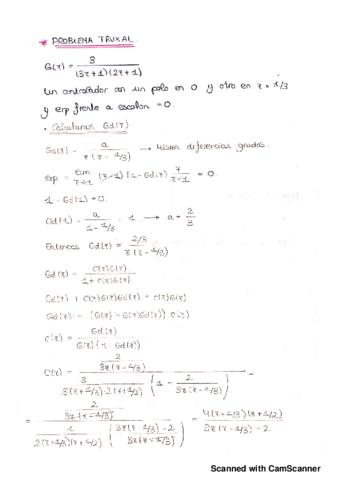 * PROBLEMA TRUXAL.
G(z) = 3 / (3z+1)(2z+1)
Un controlador con un polo en 0 y otro en z = 1/3
y erp frente a escalon = 0.
• Calculamos Gd(z)
Gd(z) = a / z(z - 1/3) → misma diferencias grados.
erp = lim z→1 (z-1) (1 - Gd(z)) z / z-1 = 0.
1 - Gd(1) = 0.
Gd(1) = a / 1 - 1/3 = 1 → a = 2/3
Entonces Gd(z) = 2/3 / z(z - 1/3)
Gd(z) = C(z)G(z) / 1 + C(z)G(z)
Gd(z) + C(z)G(z)Gd(z) = C(z)G(z)
Gd(z) = (G(z) - G(z)Gd(z)) C(z)
C(z) = Gd(z) / G(z)(1 - Gd(z))
C(z) = 2 / 3z(z - 1/3) / 3 / 3(z+1/3)·2(z+1/2) (1 - 2 / 3z(z-1/3)) =
= 2 / 3z(z-1/3) / 1 / 2(z+1/3)(z+1/2) (3z(z-1/3) - 2 / 3z(z-1/3)) = 4(z+1/3)(z+1/2) / 3z(z-1/3) - 2
Scanned with CamScanner